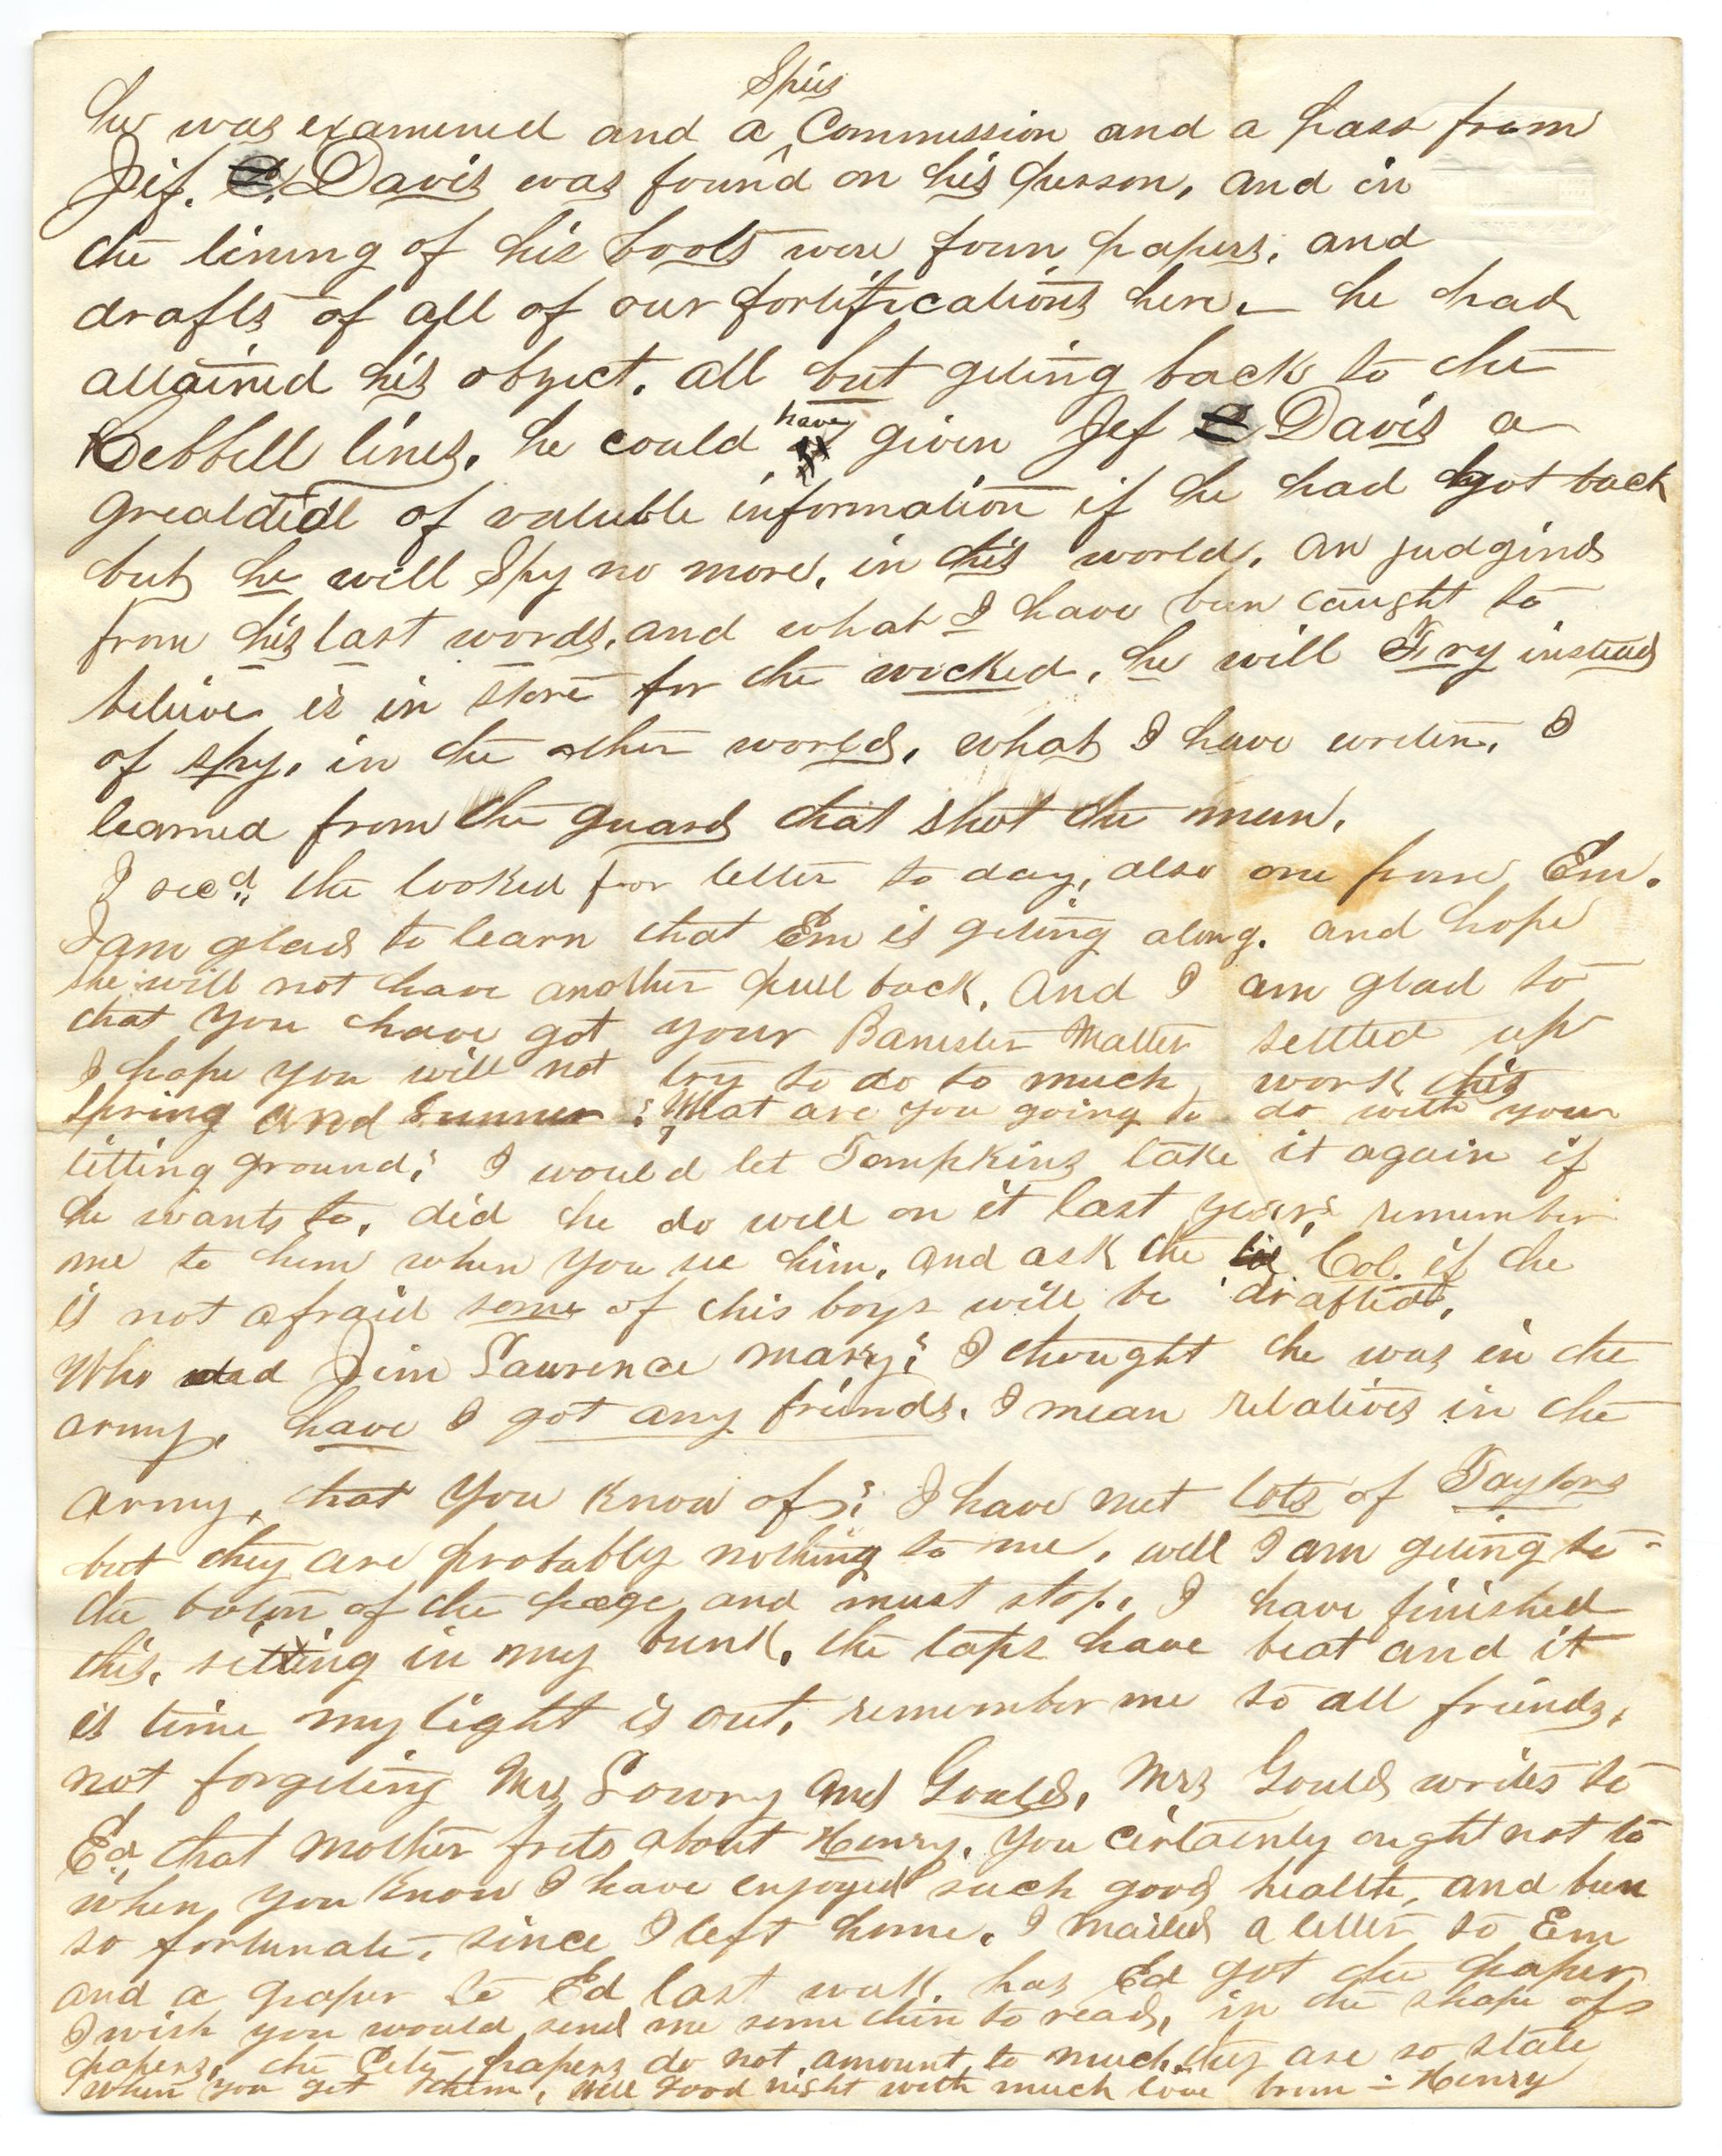 Spies
he was examined and a ^ Commission and a pass from
Jef. C. Davis was found on his person, and in
the lining of his boots were foun papers, and
drafts of all of our fortifications here. – he had
attained his object, all but geting back to the
Rebbell lines, he could have given Jef C Davis a
greatdeal of valuble information if he had got back
but he will Spy no more, in this world. an judgind
from his last words, and what I have ben taught to
belive is in store for the wicked, he will Fry instead
of spy, in the other world, what I have writen, I
learned from the guard that shot the man.
I recd. the looked for letter to day, also one from Em.
I am glad to learn that Em is geting along. and hope
she will not have another pull back. And I am glad to
that you have got your Banister Matter settled up
I hope you will not try to do to much work this
spring and summer ; What are you going to do with your
titting ground; I would let Tompkins take it again if
he wants to, did he do well on it last year; remember
me to him when you see him, and ask the Col. if he
is not afraid some of his boys will be drafted,
Who did Jim Lawrence mary; I thought he was in the
army, have I got any friends. I mean relatives in the
army, that you know of; I have met lots of Taylors
but they are probably nothing to me, well I am geting to
the botom of the page and must stop, I have finished
this, sitting in my bunk, the taps have beat and it
is time my light is out, remember me to all friends,
not forgeting Mrs Lowry and Gould, Mrs Gould writes to
Ed. that Mother frets about Henry, you certainly ought not to
when you know I have enjoyed such good health, and been
so fortunate, since I left home, I mailed a letter to Em
and a paper to Ed last week. has Ed got the paper
I wish you would send me some thin to read, in the shape of
papers, the City papers do not amount to much, they are so stale
when you get them, Well Good night with much love from – Henry